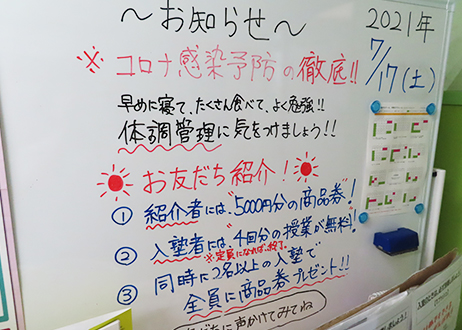 ～お知らせ～
2021年
7/17(土)
※コロナ感染予防の徹底!!
早めに寝て、たくさん食べて、よく勉強!!
体調管理に気をつけましょう!!
お友だち紹介!
① 紹介者には"5000円分の商品券"!
② 入塾者には"4回分の授業が無料"!
※定員になれば、終了。
③ 同時に2名以上の入塾で
全員に商品券プレゼント!!
に声かけてみてね